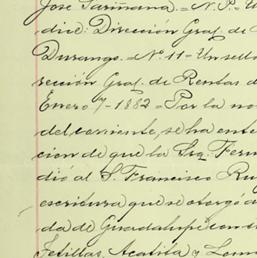 José Fariñana.=N. P.=U
dice: Dirección Gral. de
Durango.=Nº 11=Un sello
rección Gral. de Rentas d
Enero 7-1882=Por la no
del corriente, se ha ente
cion de que la Sra. Ferm
dió al S. Francisco Ru
escritura que se otorgó a
da de Guadalupe con d
Fetillas, Acatita y Lom